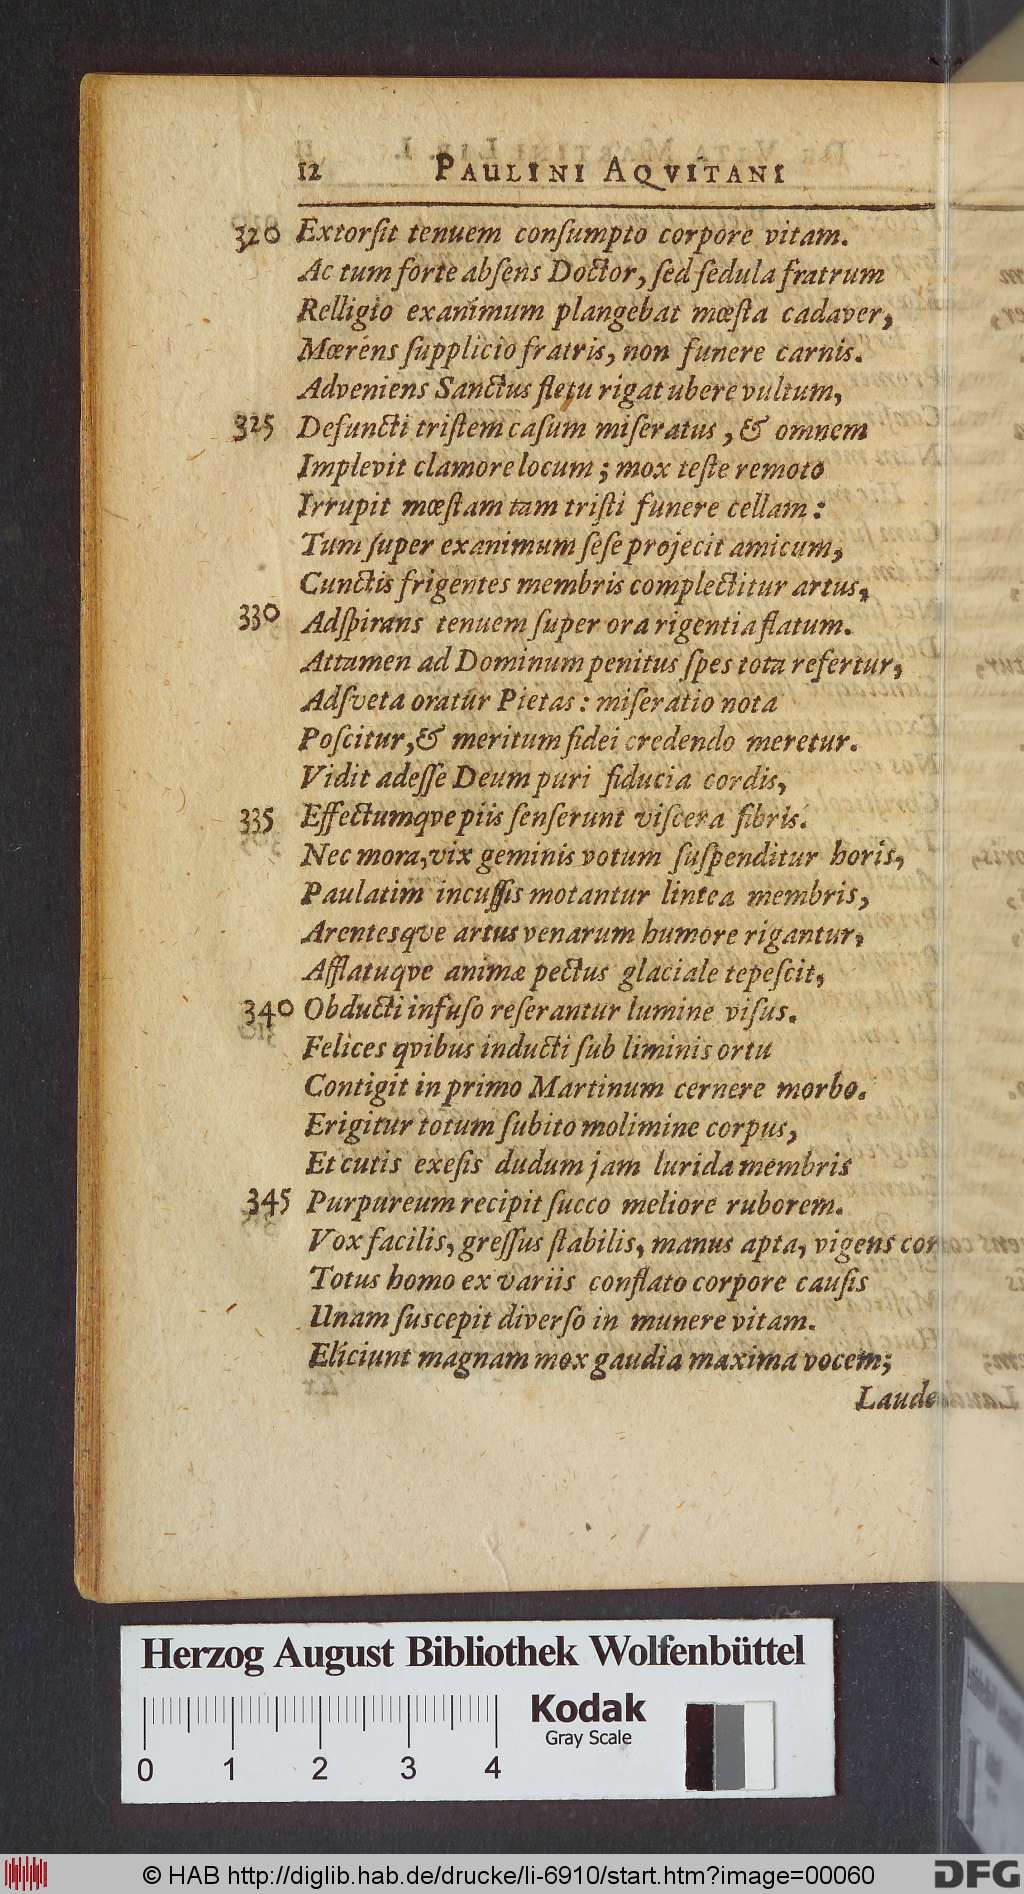 12 PAULINI AQVITANI
320 Extorſit tenuem conſumpto corpore vitam.
Ac tum forte abſens Doctor, ſed ſedula fratrum
Relligio exanimum plangebat mœſta cadaver,
Mœrens ſupplicio fratris, non funere carnis.
Adveniens Sanctus fletu rigat ubere vultum,
325 Defuncti triſtem caſum miſeratus, & omnem
Implevit clamore locum; mox teſte remoto
Irrupit mœſtam tam triſti funere cellam:
Tum ſuper exanimum ſeſe projecit amicum,
Cunctis frigentes membris complectitur artus,
330 Adſpirans tenuem ſuper ora rigentia flatum.
Attamen ad Dominum penitus ſpes tota refertur,
Adſveta oratur Pietas: miſeratio nota
Poſcitur, & meritum fidei credendo meretur.
Vidit adeſſe Deum puri fiducia cordis,
335 Effectumqve piis ſenſerunt viſcera fibris.
Nec mora, vix geminis votum ſuſpenditur horis,
Paulatim incuſſis motantur lintea membris,
Arentesqve artus venarum humore rigantur,
Afflatuqve animæ pectus glaciale tepeſcit,
340 Obducti infuſo reſerantur lumine viſus.
Felices qvibus inducti ſub liminis ortu
Contigit in primo Martinum cernere morbo.
Erigitur totum ſubito molimine corpus,
Et cutis exeſis dudum jam lurida membris
345 Purpureum recipit ſucco meliore ruborem.
Vox facilis, greſſus ſtabilis, manus apta, vigens cor
Totus homo ex variis conflato corpore cauſis
Unam ſuscepit diverſo in munere vitam.
Eliciunt magnam mox gaudia maxima vocem;
Laude
Herzog August Bibliothek Wolfenbüttel
Kodak
Gray Scale
0 1 2 3 4
© HAB http://diglib.hab.de/drucke/li-6910/start.htm?image=00060
DFG